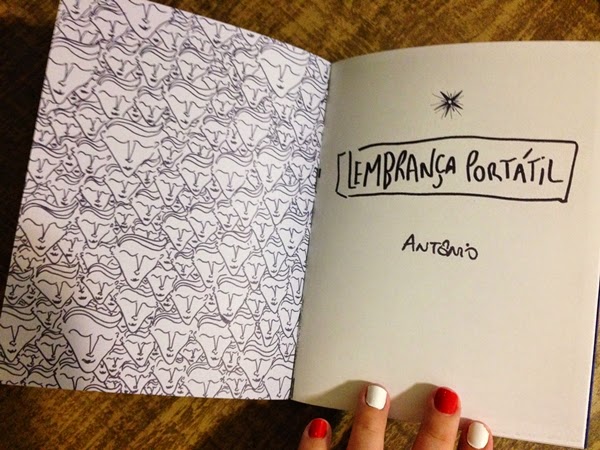 LEMBRANÇA PORTÁTIL
ANTÔNIO